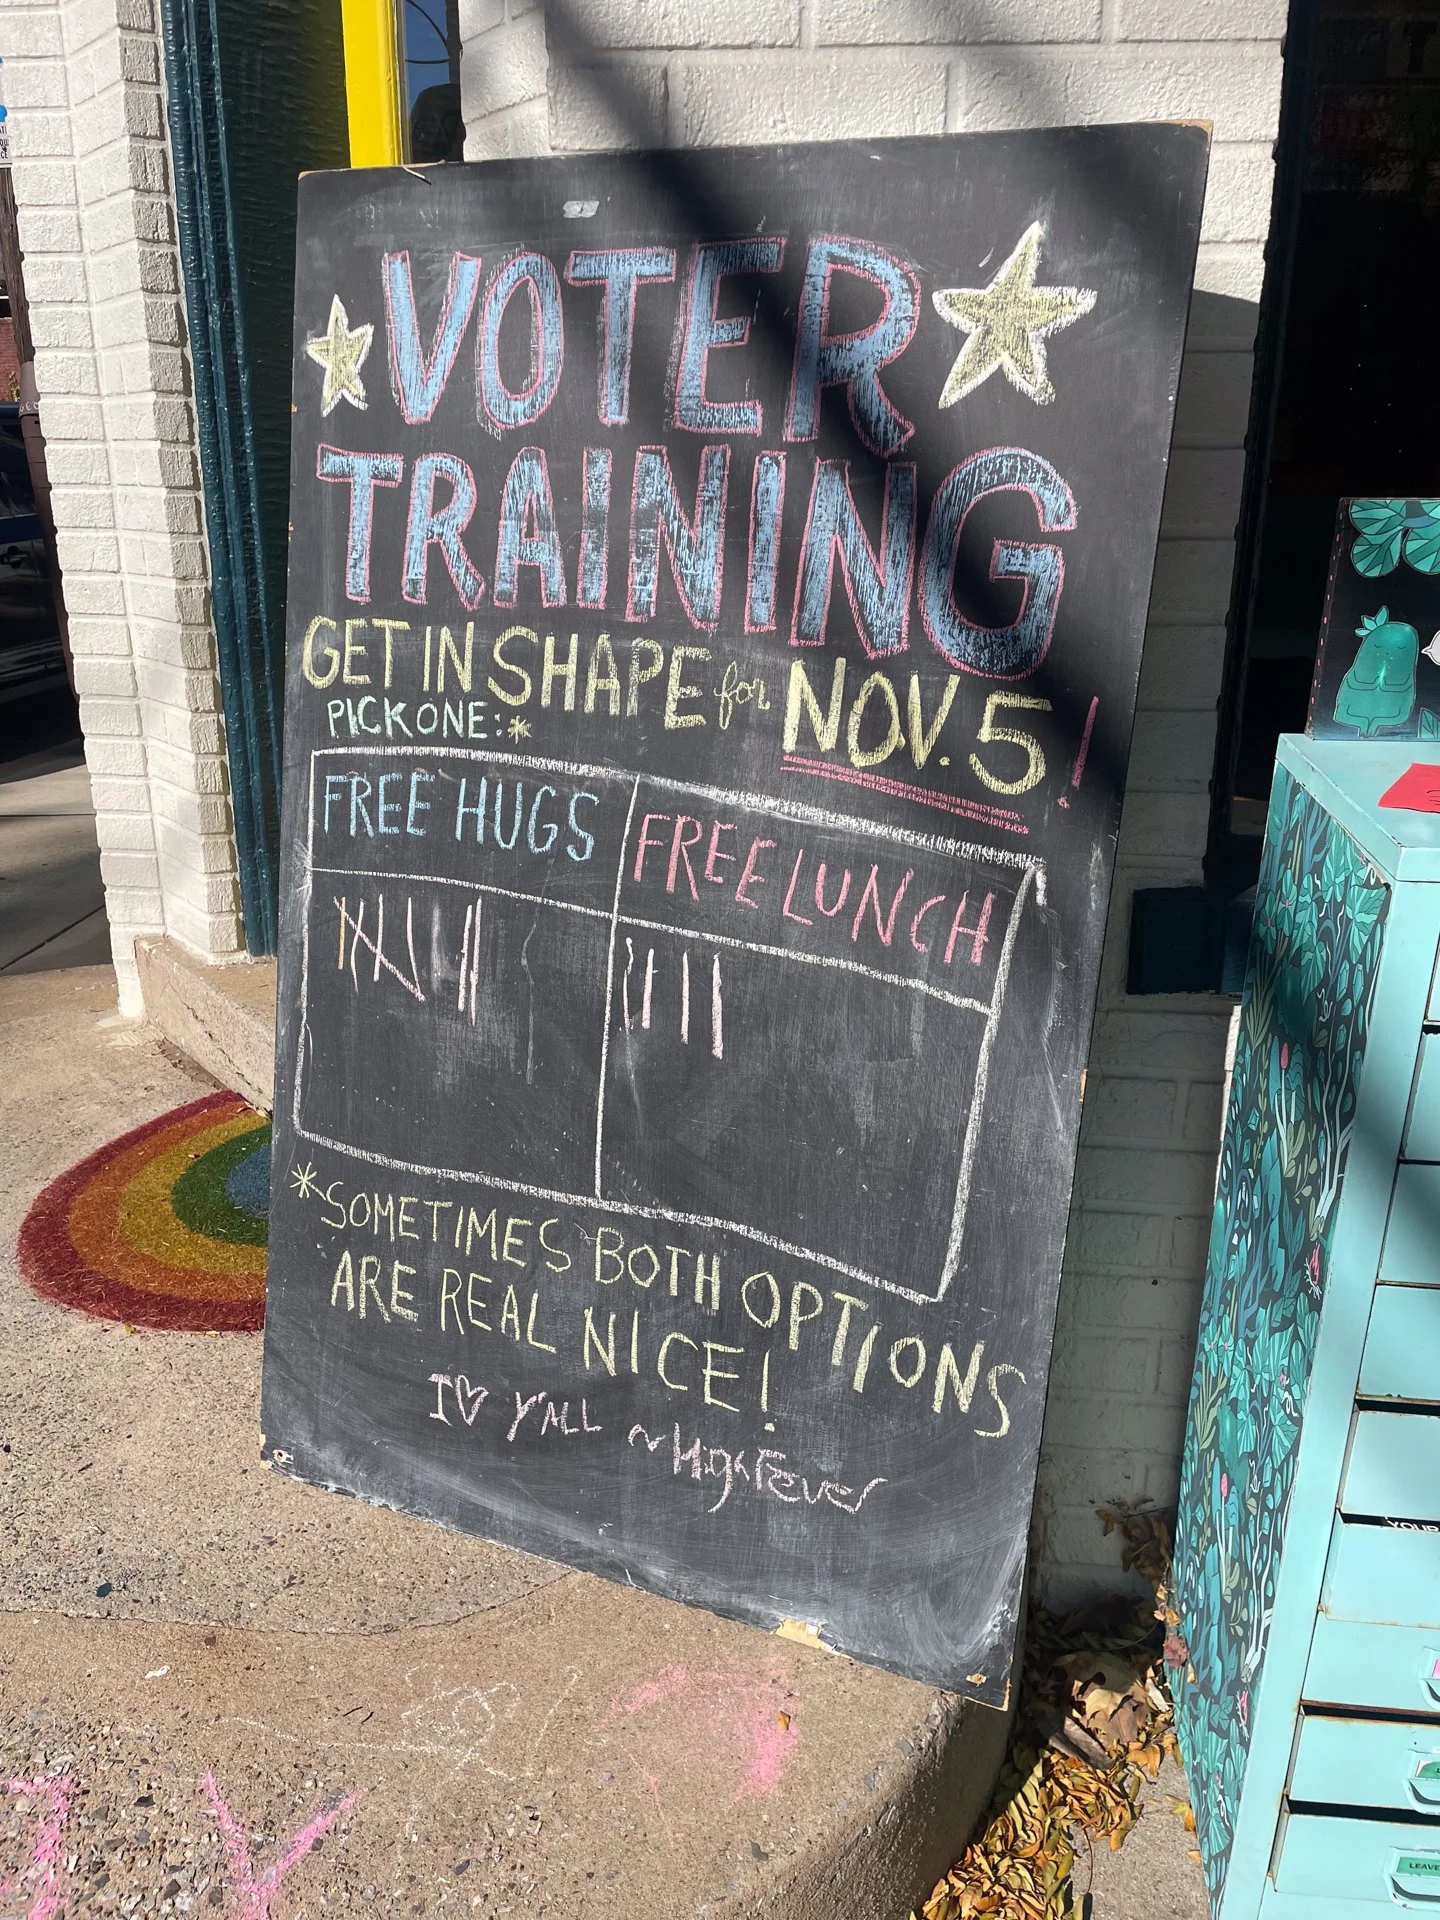 VOTER
TRAINING
GET IN SHAPE for NOV. 5!
PICK ONE:*
FREE HUGS
FREE LUNCH
*SOMETIMES BOTH OPTIONS
ARE REAL NICE!
I ♡ Y'ALL ~HighFever
YOUR
LEAVE